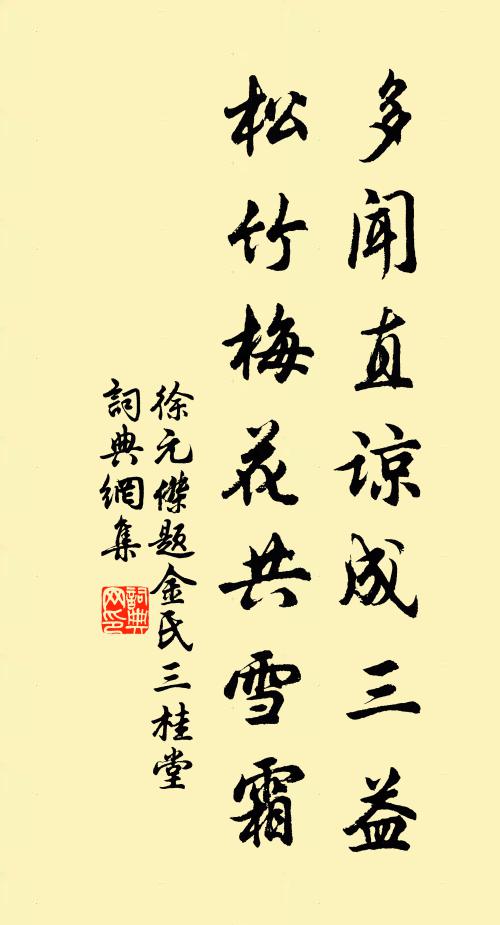 多闻直谅成三益
松竹梅花共雪霜
徐元傑题金氏三桂堂
詞典網集
詞典网印